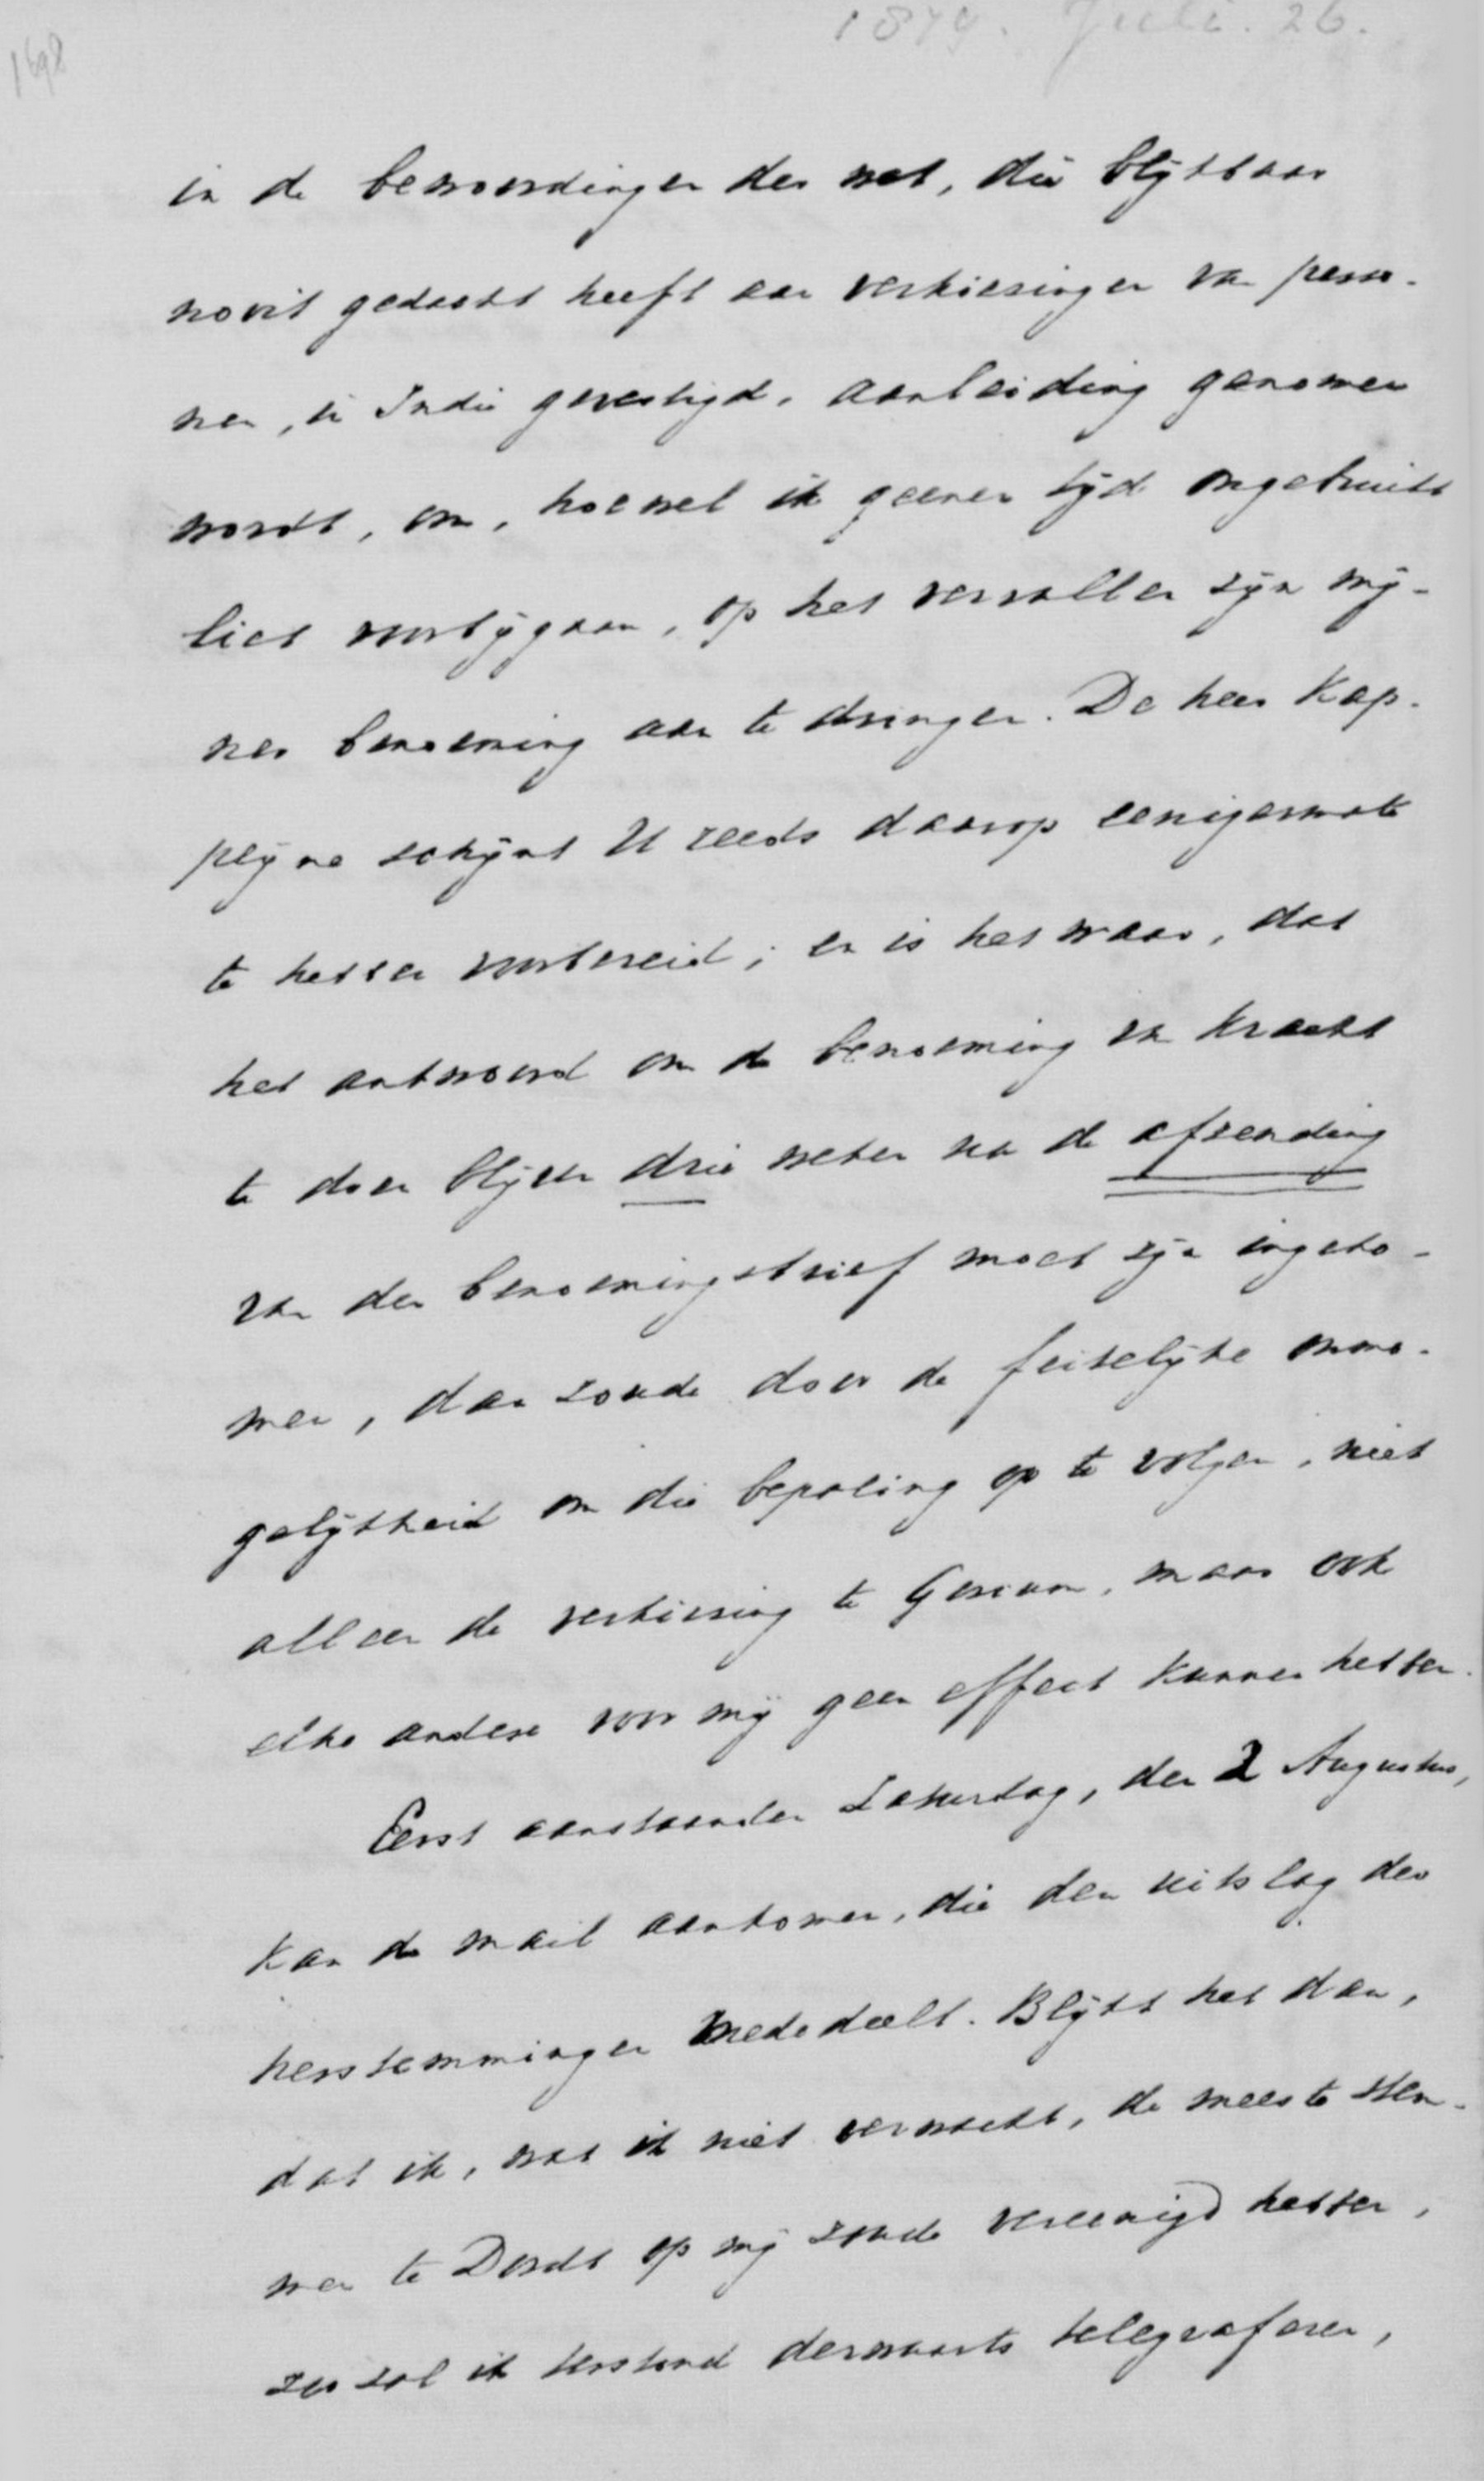 1879. Juli. 26.
1698
in de bewoordingen der wet, die blijkbaar
nooit gedacht heeft aan verkiezingen van perso-
nen, in Indië gevestigd, aanleiding genomen
wordt, om, hoewel ik geenen tijd ongebruikt
liet voorbijgaan, op het vervallen zijn mij-
ner benoeming aan te dringen. De heer Kap-
peijne schijnt U reeds daarop eenigermate
te hebben voorbereid; en is het waar, dat
het antwoord om de benoeming van kracht
te doen blijven drie weken na de afzending
van den benoemingsbrief moet zijn ingeko-
men, dan zoude door de feitelijke onmo-
gelijkheid om die bepaling op te volgen, niet
alleen de verkiezing te Gorcum, maar ook
elke andere voor mij geen effect kunnen hebben.
Eerst aanstaanden Zaturdag, den 2 Augustus,
kan de mail aankomen, die den uitslag der
herstemmingen mededeelt. Blijkt het dan,
dat ik, wat ik niet verwacht, de meeste stem-
men te Dordt op mij zoude vereenigd hebben,
zoo zal ik terstond derwaarts telegraferen,